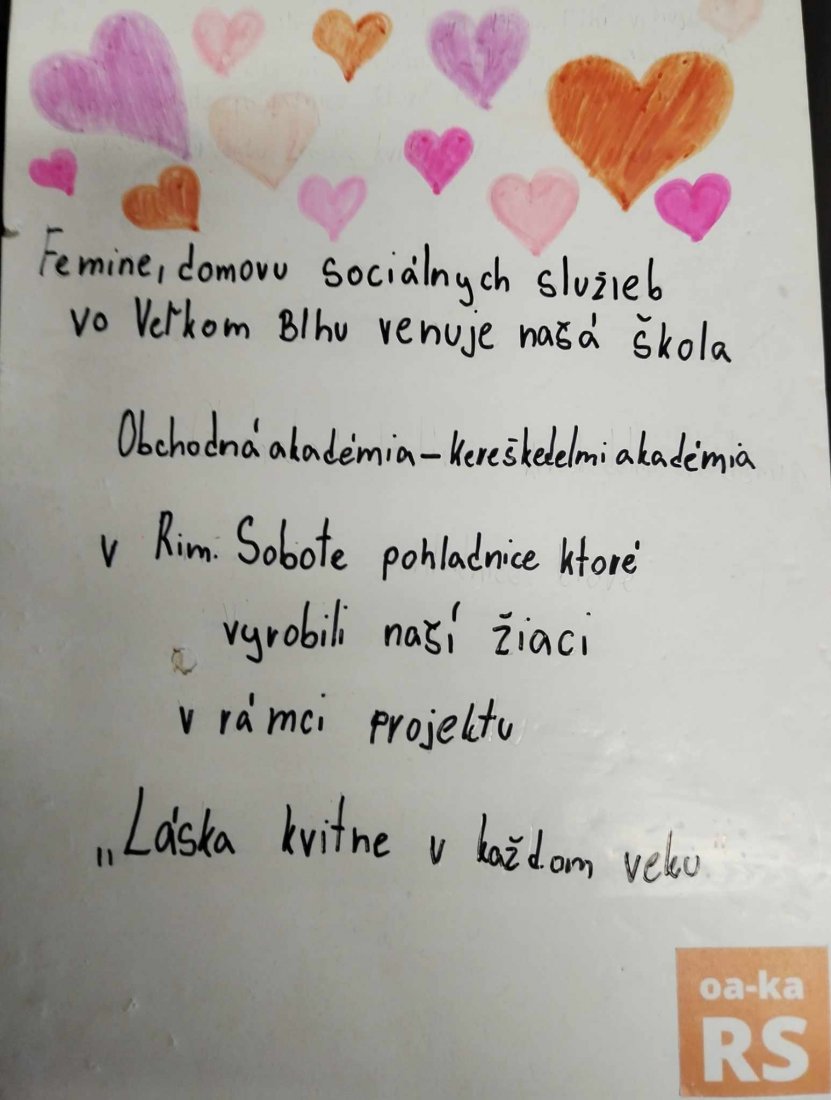 Femine, domovu sociálnych služieb
vo Veľkom Blhu venuje našá škola
Obchodná akadémia - kereškedelmi akadémia
v Rim. Sobote pohladnice ktoré
vyrobili naší žiaci
v rámci projektu
„Láska kvitne v každom veku"
oa-ka
RS